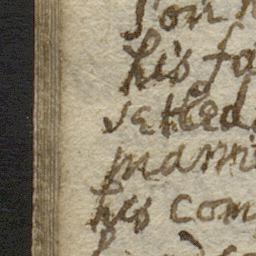 son
his fa
setled
marri
his com